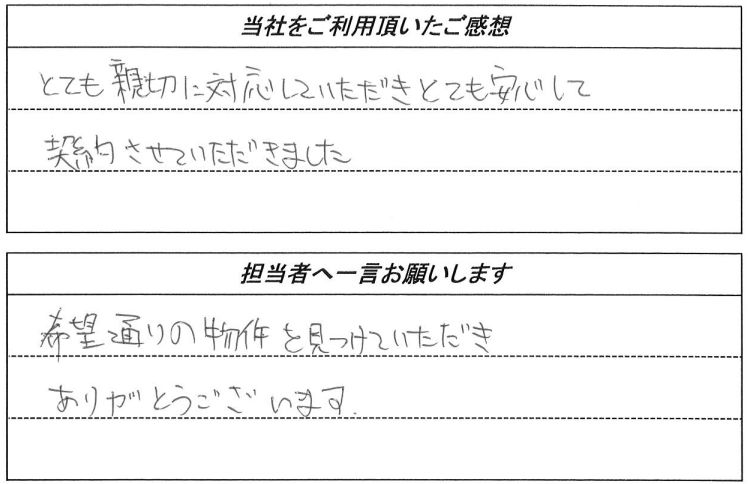 当社をご利用頂いたご感想
とても親切に対応していただきとても安心して
契約させていただきました
担当者へ一言お願いします
希望通りの物件を見つけていただき
ありがとうございます.